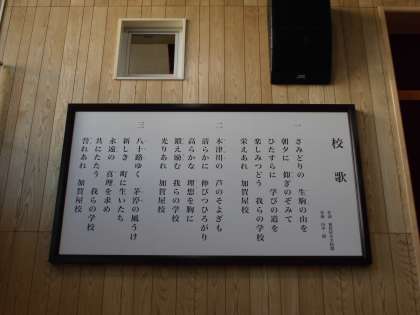 校歌
一
さみどりの 生駒の山を
朝夕に 仰ぎのぞみて
ひたすらに 学びの道を
楽しみつどう 我らの学校
栄えあれ 加賀屋校
二
木津川の 芦のそよぎも
清らかに 伸びつひろがり
高らかな 理想を胸に
鍛え励む 我らの学校
光りあれ 加賀屋校
三
八十路ゆく 茅渟の風うけ
新しき 町に生いたち
永遠の 真理を求め
共にたたう 我らの学校
誉れあれ 加賀屋校